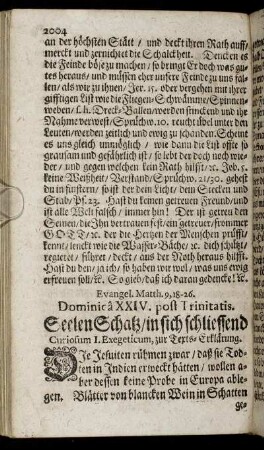 2004
an der höchsten Stätt / und deckt ihren Rath auff /
merckt und zernichtet die Schalckheit. Dencken es
die Feinde böse zu machen / so bringt Er doch was gu-
tes heraus / und müssen eher unsere Feinde zu uns fal-
len / als wir zu ihnen / Jer. 15. oder vergehen mit ihrer
gifftigen List wie die Fliegen-Schwämme / Spinnen-
weben / l. h. Dreck-Ballen / werden stinckend und ihr
Nahme verwost / Sprüchw. 10. reucht übel unter den
Leuten / werden zeitlich und ewig zu schanden. Scheint
es uns gleich unmöglich / wie dann die List offt so
grausam und gefährlich ist / so lebt der doch noch wie-
der / und gegen welchen kein Rath hilfft / ꝛc. Job. 5.
keine Weißheit / Verstand / ꝛc. Sprüchw. 21/30. gehest
du in finstern / so ist der dein Licht / dein Stecken und
Stab / Ps. 23. Hast du keinen getreuen Freund / und
ist alle Welt falsch / immer hin! Der ist getreu den
Seinen / die Ihn vertrauen fest / ein getreuer / frommer
GOTT / ꝛc. der die Hertzen der Menschen prüfft /
kennt / lenckt wie die Wasser-Bäche / ꝛc. dich schützt /
regiert / führet / deckt / aus der Noth heraus hilfft.
Hast du den / ja ich / so haben wir wol / was uns ewig
erfreuen soll / ꝛc. So gieb / daß ich daran gedencke! ꝛc.
Evangel. Matth. 9, 18-26.
Dominicâ XXIV. post Trinitatis.
Seelen Schatz / in sich schliessend
Curiosum I. Exegeticum, zur Texts-Erklärung.
DIe Jesuiten rühmen zwar / daß sie Tod-
ten in Indien erweckt hätten / wollen a-
ber dessen keine Probe in Europa able-
gen. Blätter von blancken Wein in Schatten
ge-